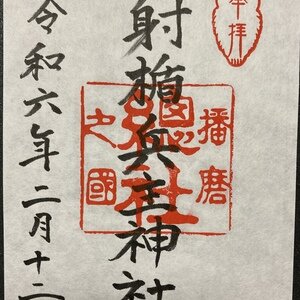 奉拝
射楯兵主神社
播磨
之國
總社
令和六年二月十